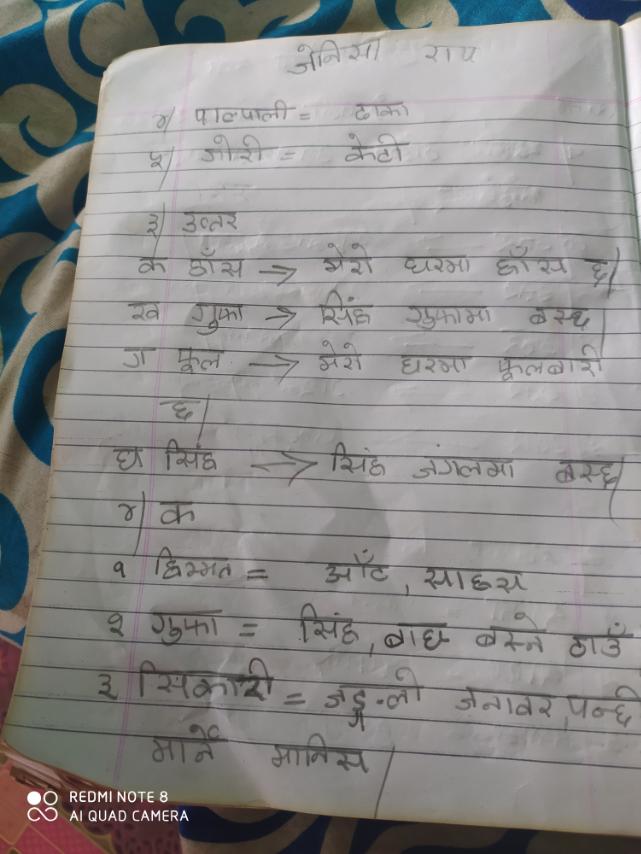 जेनिसा राय
४/ पाल्पाली = ढाका
५/ गोरी = केटी
३/ उत्तर
क हाँस → मेरो घरमा हाँस छ।
ख गुफा → सिंह गुफामा बस्छ।
ग फूल → मेरो घरमा फूलबारी
छ।
घ सिंह → सिंह जंगलमा बस्छ।
४/ क
१ हिम्मत = आँट, साहस
२ गुफा = सिंह, बाघ बस्ने ठाउँ
३ सिकारी = जङ्गली जनावर, पन्छी
मार्ने मानिस।
REDMI NOTE 8
AI QUAD CAMERA